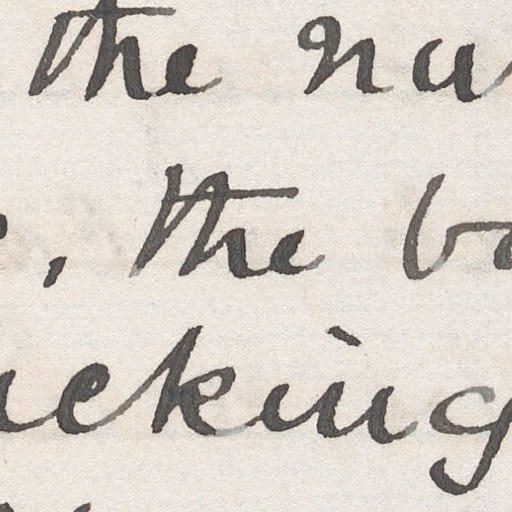 the na
, the bo
ucking